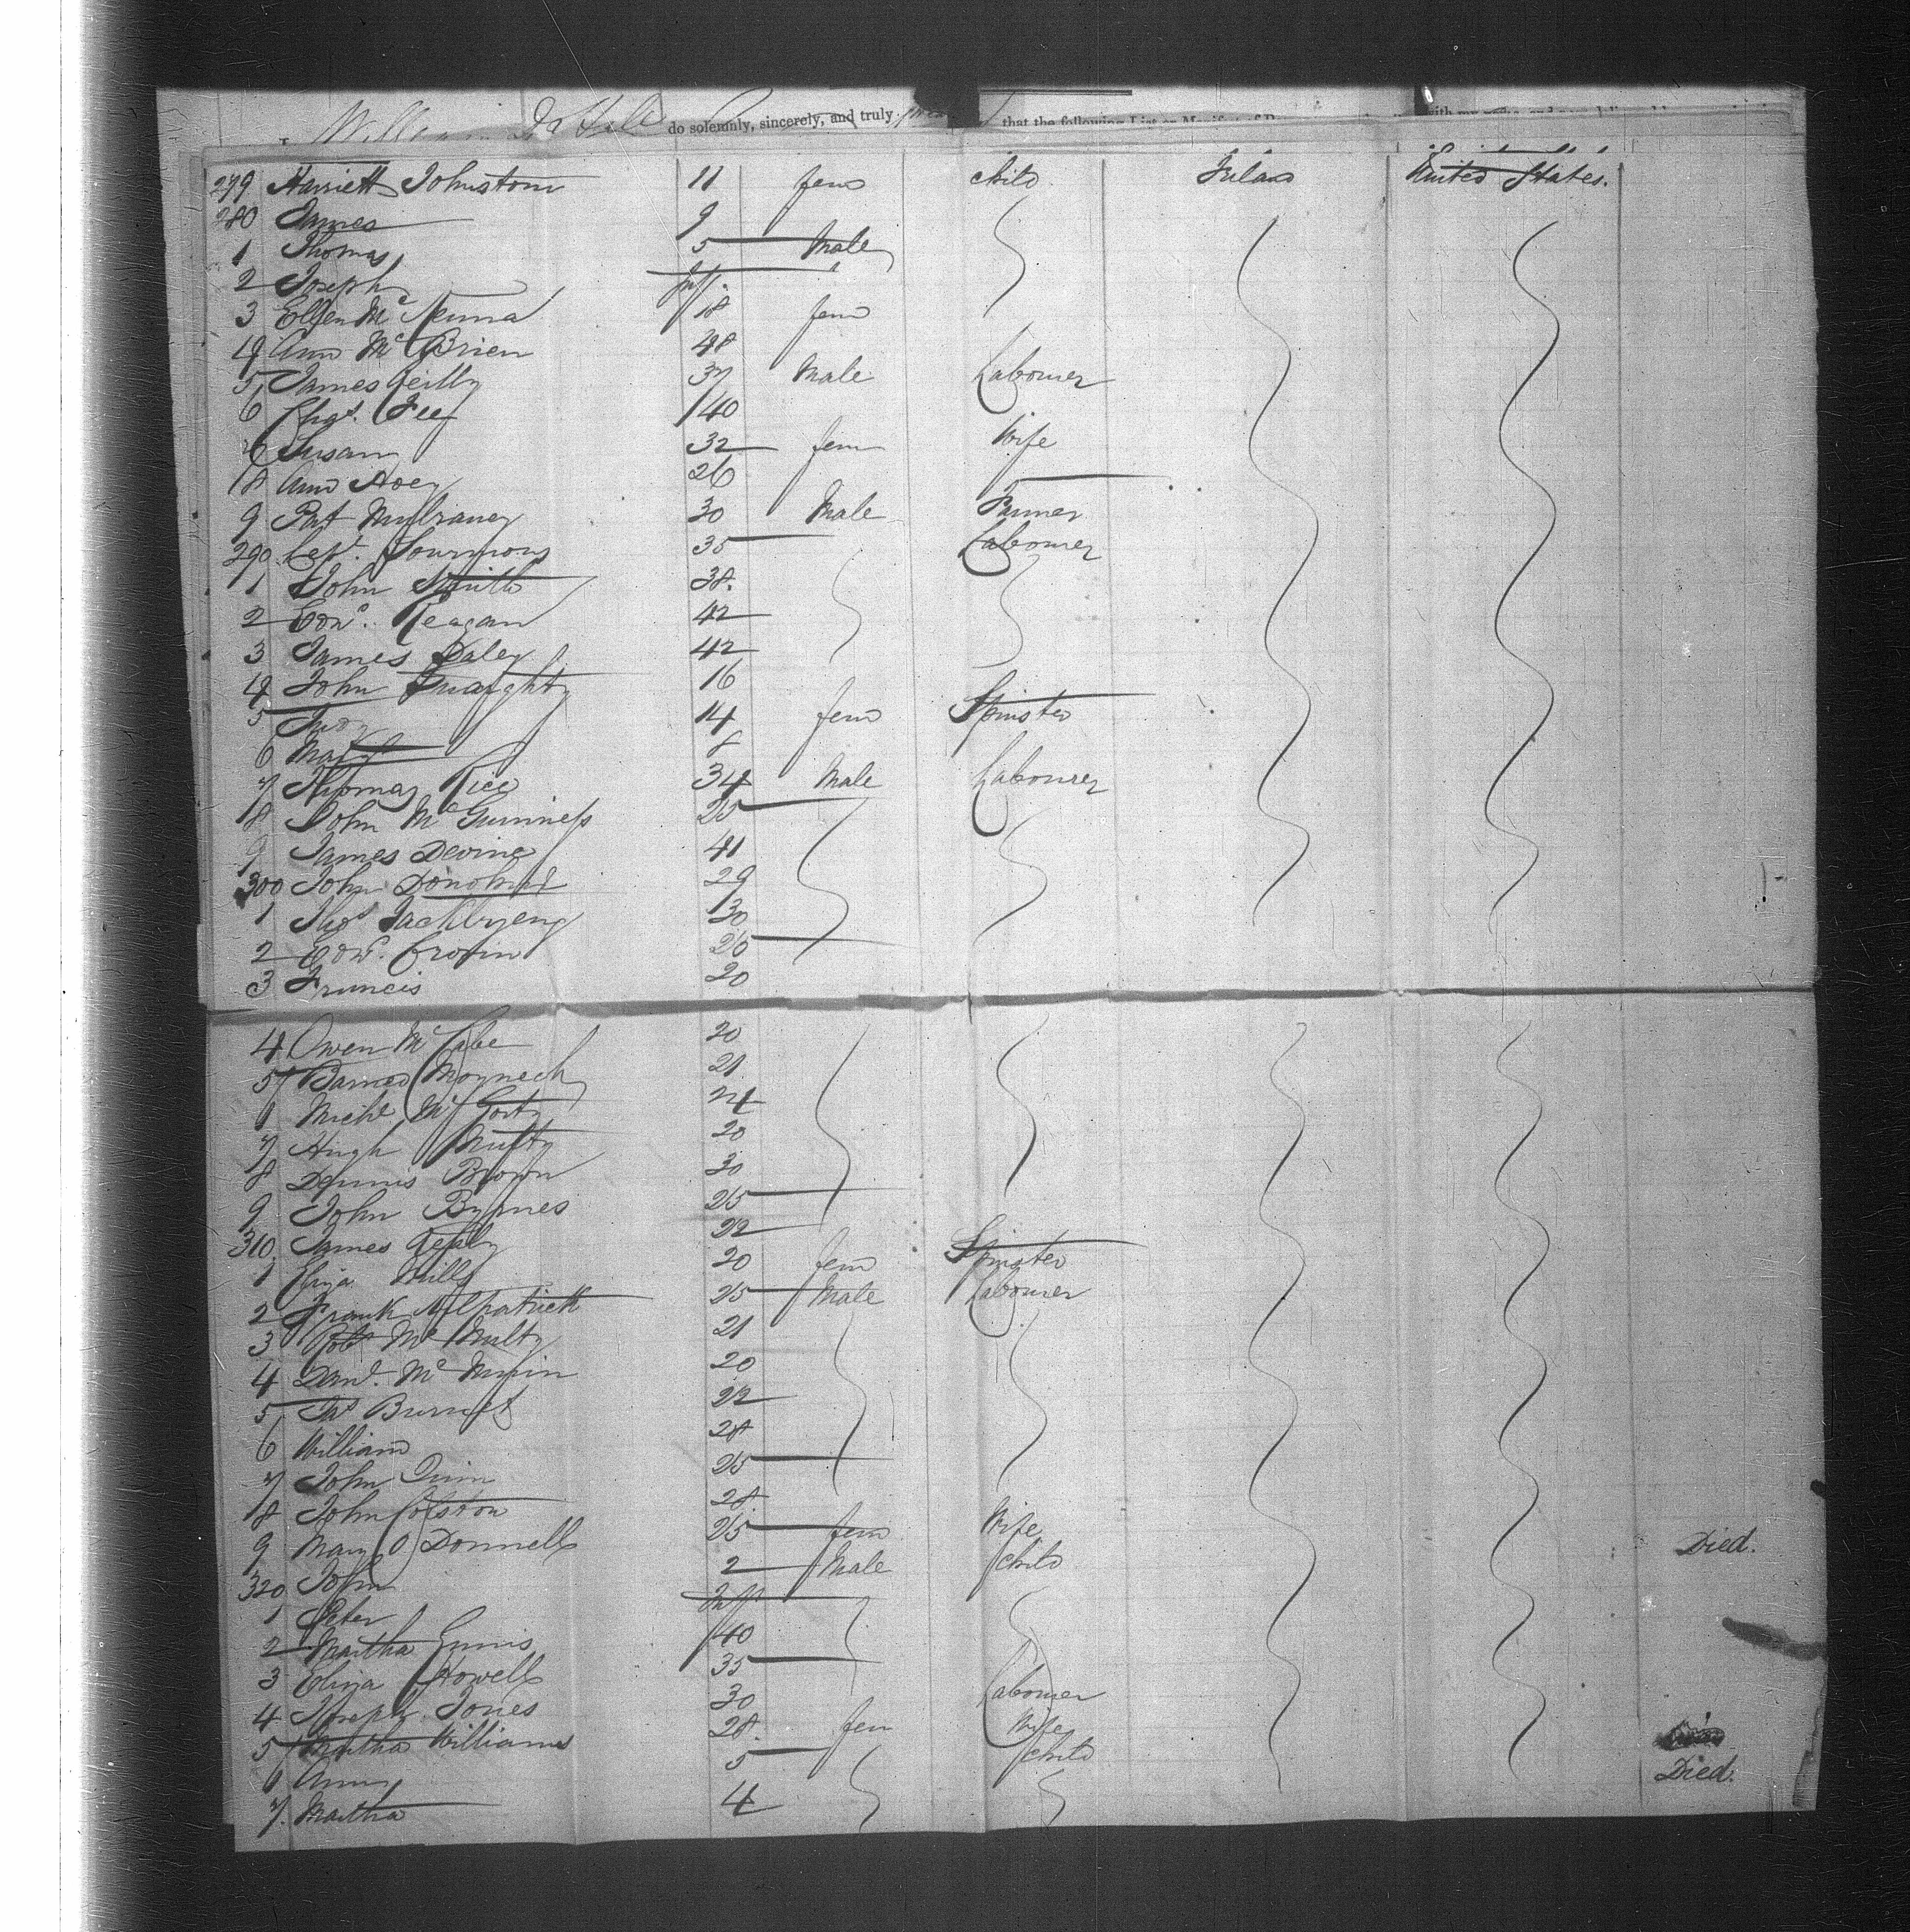 do solemnly, sincerely, and truly that the following List or Manifest of
279 Harriett Johnston 11 fem child Ireland United States.
280 James 9
1 Thomas 5 Male
2 Joseph Inf.
3 Ellen Mc 18 fem
4 Ann McBrien 48
5 James Reilly 37 Male Labourer
6 Chas. Fee 40
Susan 32 fem Wife
8 Ann Hoey 26
9 Pat Mulraney 30 Male Farmer
290 35 Labourer
1 John Smith 38.
2 Edwd. Reagan 42
3 James Daley 42
4 John 16
5 Judy 14 fem Spinster
6 Margt 8
7 Thomas Rice 34 Male Labourer
8 John McGuinness 25
9 James Devine 41
300 John Donohue 29
1 Thos 30
2 Edwd. Cronin 26
3 Francis 20
4 Owen McCabe 20
5 21
Michl Mc 24
7 Hugh 20
8 Dennis Brown 30
9 John Byrnes 25
310 James 22
1 Eliza Mills 20 fem Spinster
2 Frank Kilpatrick 25 Male Labourer
3 Robt McNulty 21
4 Danl. Mc 20
5 Jas Burnet 22
6 William 28
7 John Quinn 25
8 John 28.
9 Mary O Donnell 25 fem Wife
320 John 2 Male child Died.
1 Peter Inf
2 Martha Ennis 40
3 Eliza Howell 35
4 Joseph Jones 30 Labourer
5 Martha Williams 28. fem Wife
6 Ann 5 child Died.
7. Martha 4